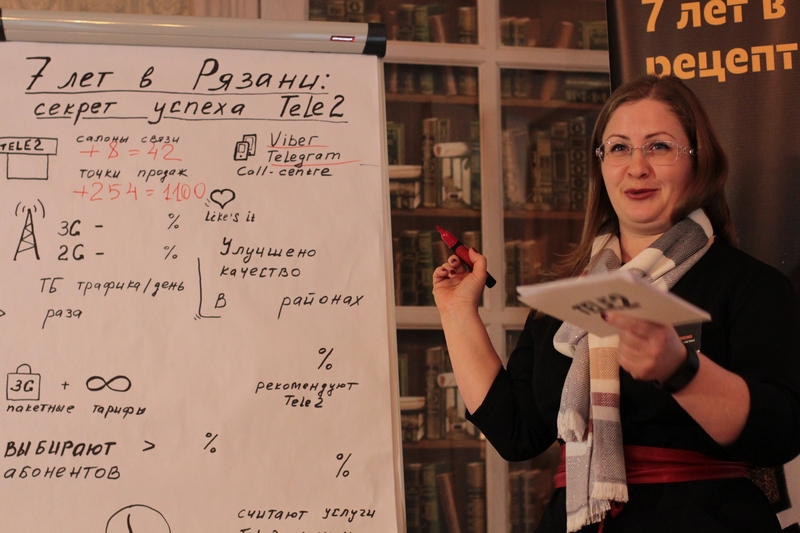 7 лет в Рязани:
секрет успеха Tele2
TELE2
салоны связи
+8=42
точки продаж
+254=1100
Viber
Telegram
Call-centre
Like's it
3G - %
2G - %
Улучшено
качество
в районах
ТБ трафика/день
раза
3G + ∞
пакетные тарифы
%
рекомендуют
Tele2
ВЫБИРАЮТ > %
абонентов
%
считают услуги
7 лет в
рецепт
TELE2